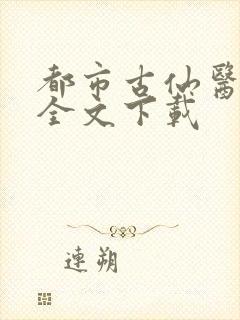 都市古仙醫
全文下載
連朔